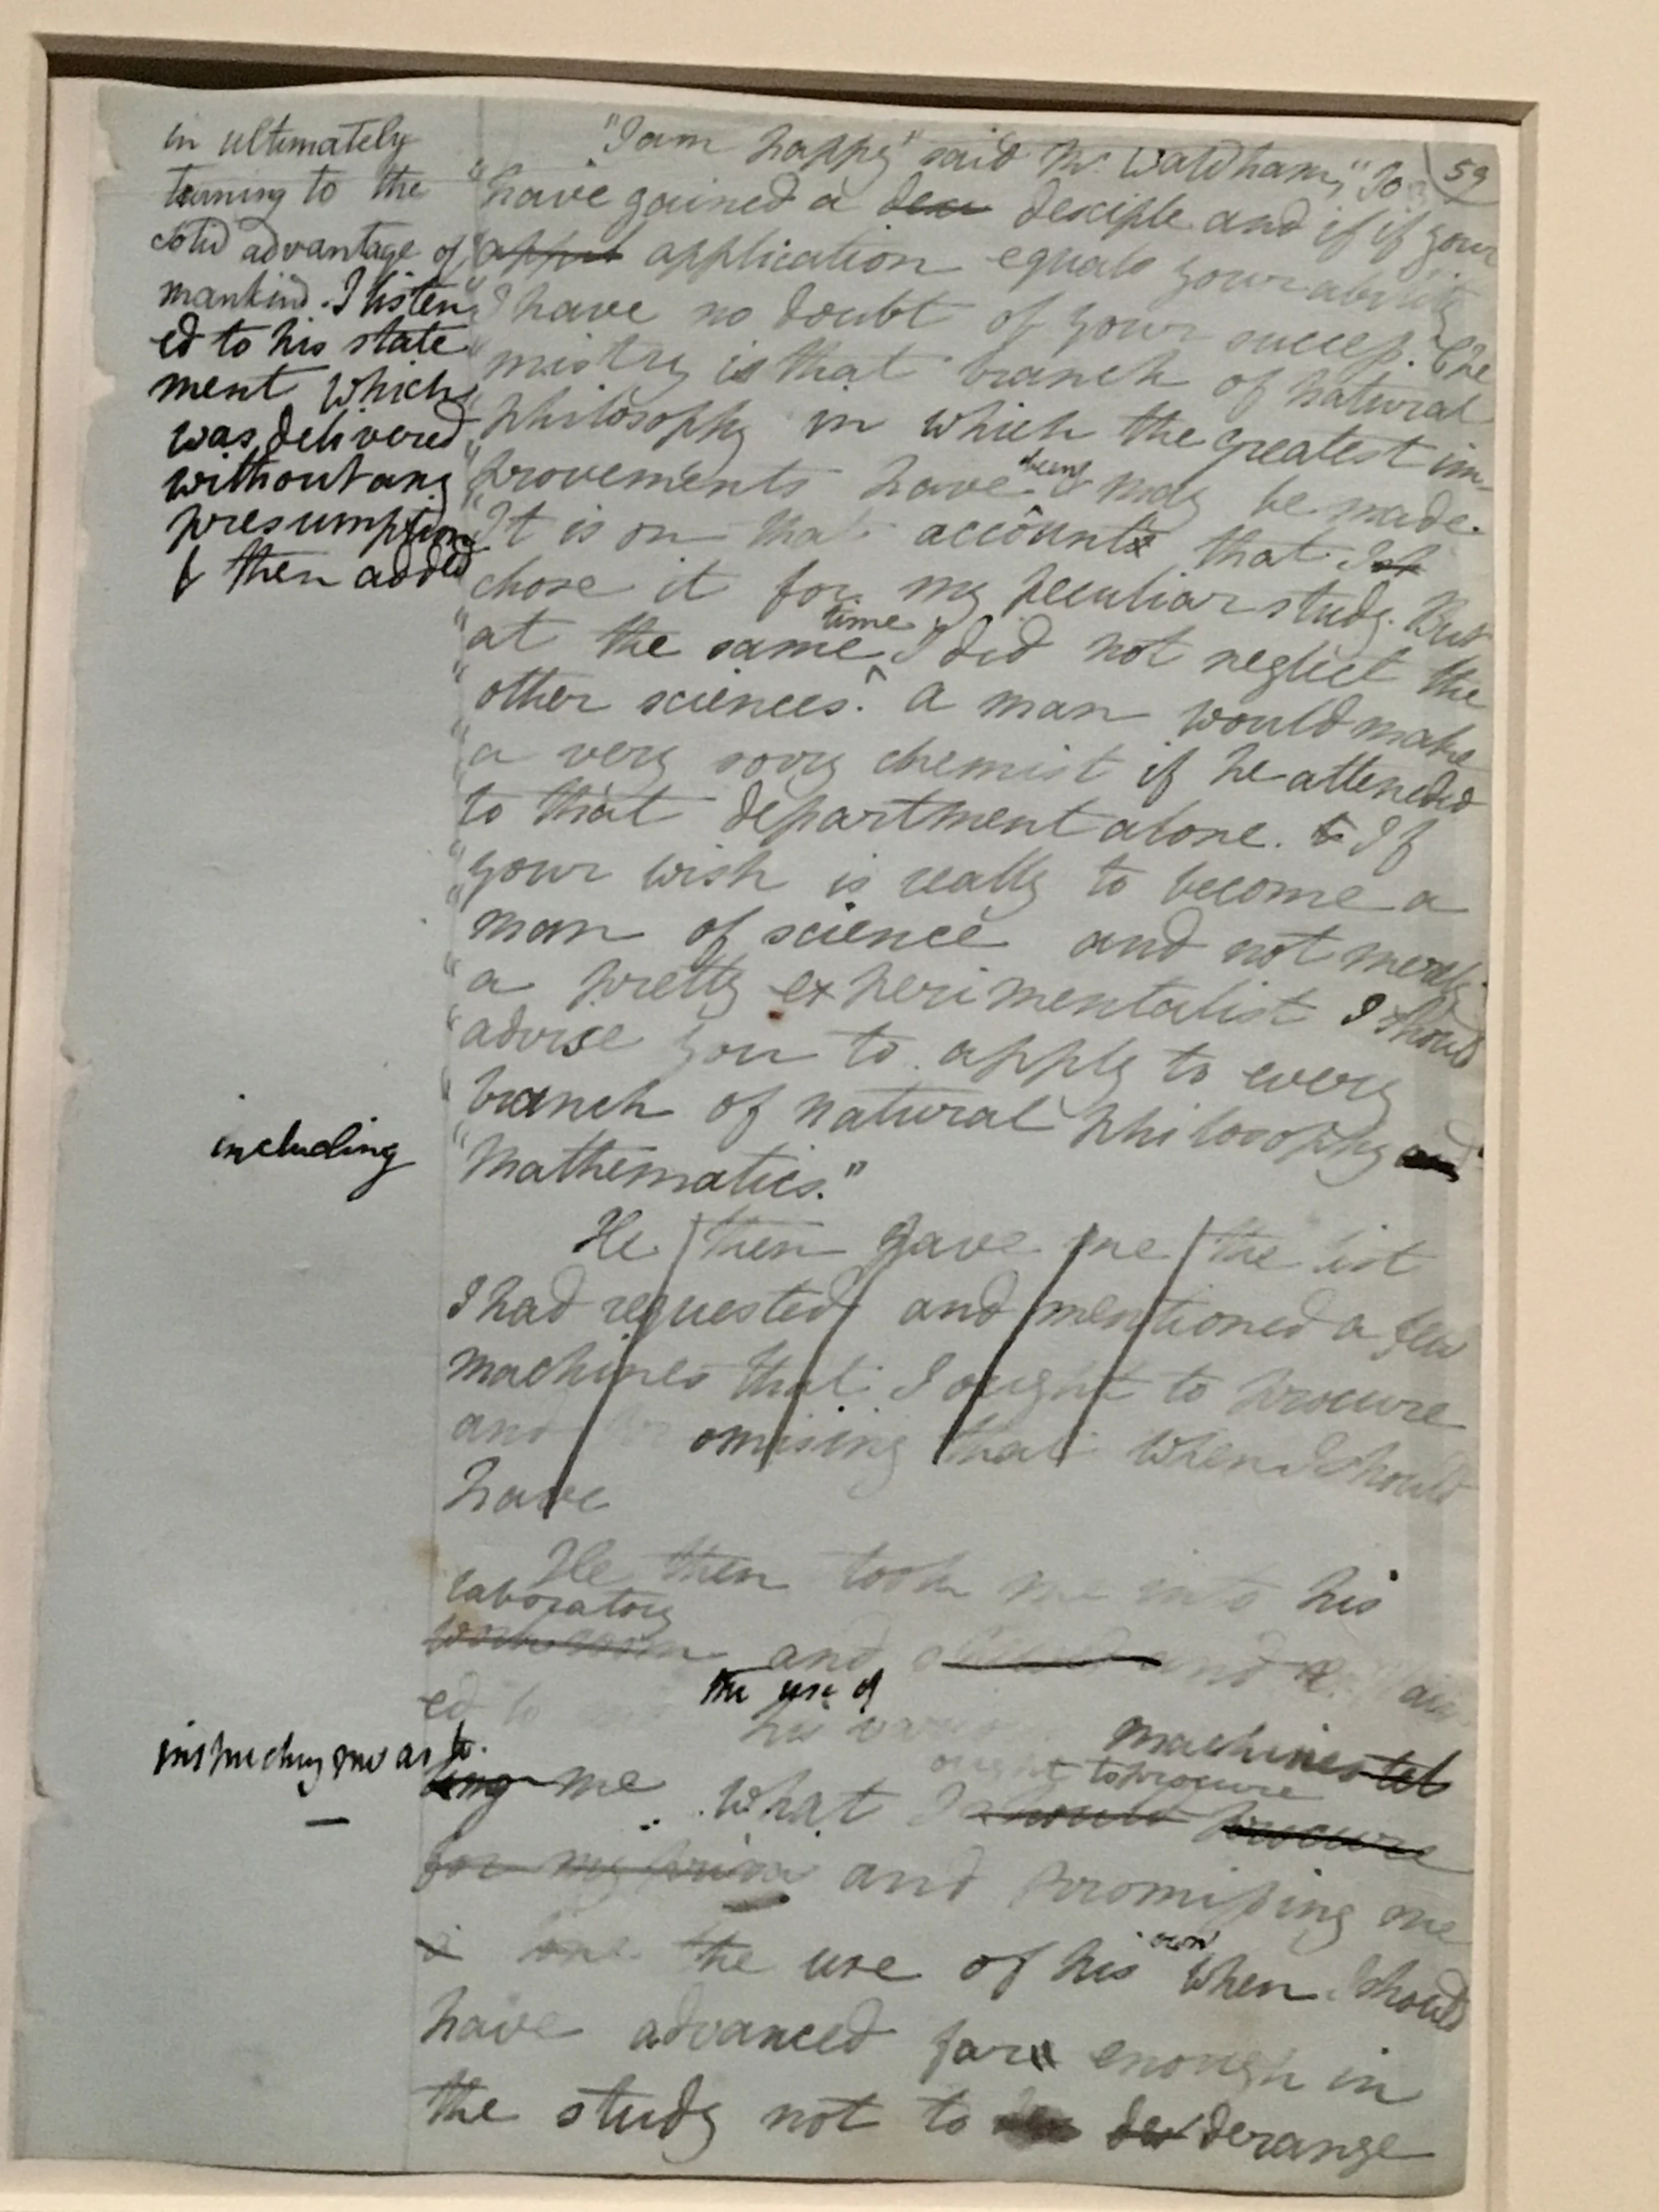 in ultimately
turning to the
solid advantage of
mankind. I listen
ed to his state
ment which
was delivered
without any
presumption
& then added
59
"I am happy" said Mr. Waldham, "to
"have gained a desciple and if if your
appli application equals your ability
"I have no doubt of your success. Che
"mistry is that branch of natural
"philosophy in which the greatest im-
"provements have been & may be made.
"It is on that account that I
chose it for my peculiar study. But
time
"at the same ^ I did not neglect the
"other sciences. a man would make
"a very sorry chemist if he attended
to that department alone. If
"your wish is really to become a
"man of science and not merely
"a pretty experimentalist I should
"advise you to apply to every
"branch of natural philosophy and
including
"Mathematics."
He then gave me the list
I had requested and mentioned a few
machines that I ought to procure
and promising that when I should
have
He then took me into his
laboratory
workroom and and
ed to
the use of
his various machines tel
instructing me as to
ling me what I should procure
ought to procure
for my and promising me
the use of his own when I should
have advanced far enough in
the study not to der derange